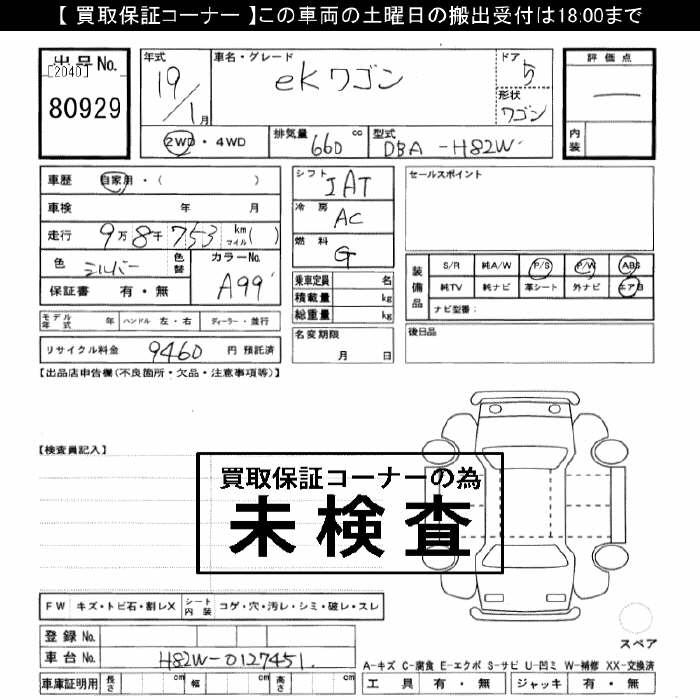 【 買取保証コーナー 】この車両の土曜日の搬出受付は18:00まで
出品No. [2040] 80929
年式 19/1月
車名・グレード eKワゴン
ドア 5
形状 ワゴン
2WD・4WD
排気量 660 cc
型式 DBA-H82W
評価点 —
内装
車歴 自家用・( )
車検 年 月
走行 9万8千753 km マイル( )
色 シルバー 色替
カラーNo. A99
保証書 有・無
シフト IAT
冷房 AC
燃料 G
乗車定員 名
積載量 kg
総重量 kg
セールスポイント
装備品 S/R 純A/W P/S P/W ABS
純TV 純ナビ 革シート 外ナビ エアB
ナビ型番:
モデル年式 年 ハンドル 左・右 ディーラー・並行
リサイクル料金 9460 円 預託済
名変期限 月 日
後日品
【出品店申告欄(不良箇所・欠品・注意事項等)】
【検査員記入】
買取保証コーナーの為
未検査
FW キズ・トビ石・割レX シート内装 コゲ・穴・汚レ・シミ・破レ・スレ
登録No.
車台No. H82W-0127451
スペア
A-キズ C-腐食 E-エクボ S-サビ U-凹ミ W-補修 XX-交換済
車庫証明用 長さ cm 幅 cm 高さ cm
工具 有・無 ジャッキ 有・無